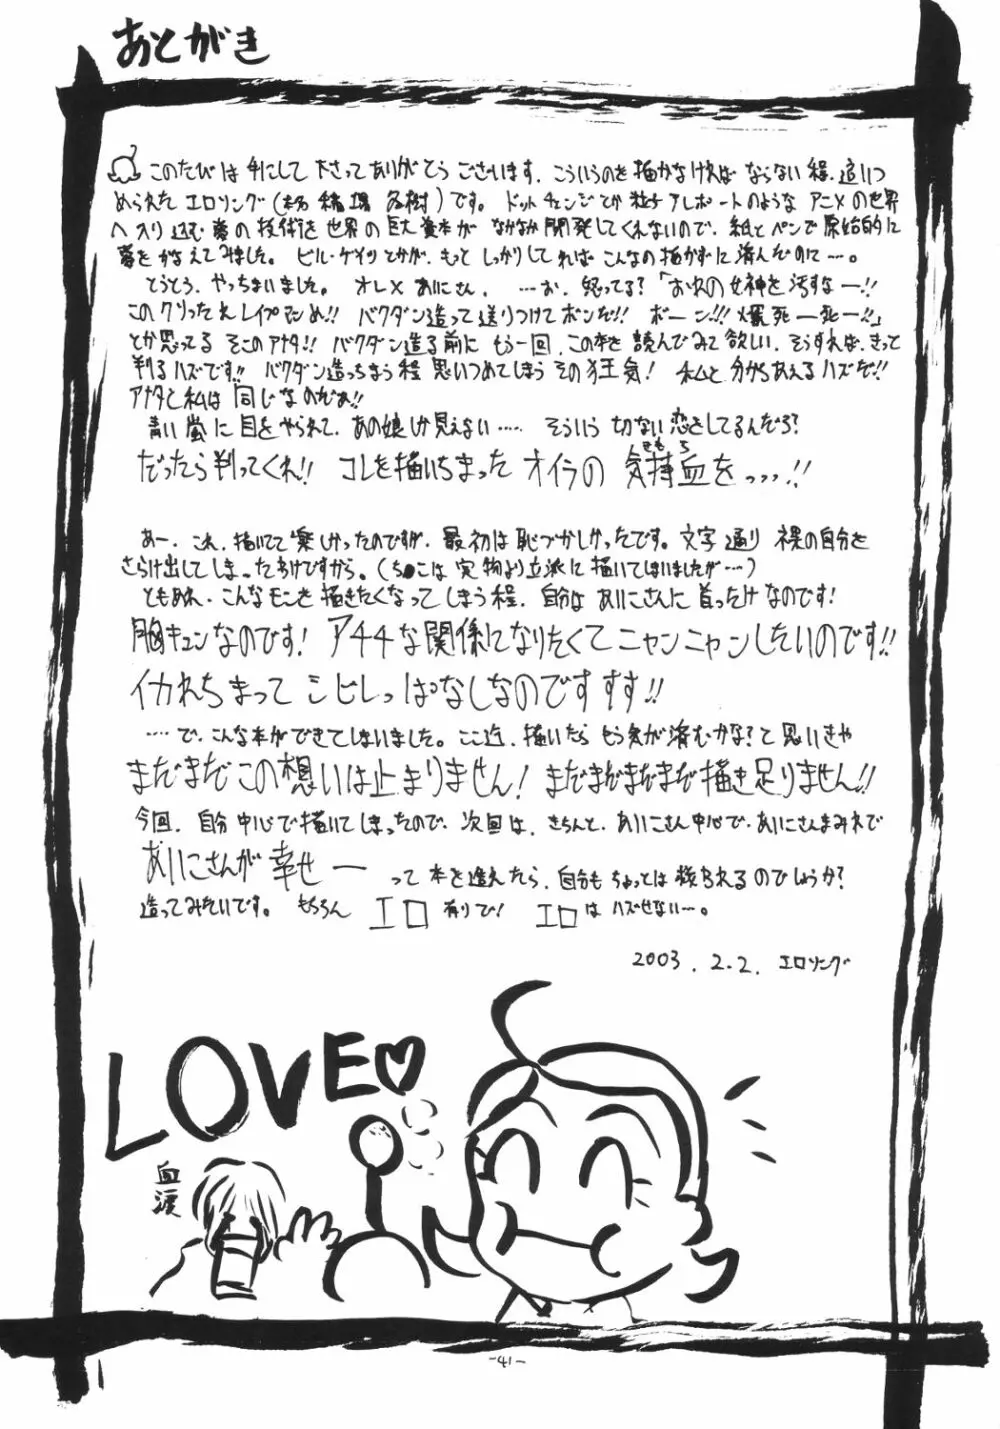 あとがき
このたびは手にして下さってありがとうございます。こういうのを描かなければならない程、追いつ
められたエロリング()です。ドットチェンジとか粒子アレポートのようなアニメの世界
へ入り込む夢の技術を世界の巨大資本がなかなか開発してくれないので、紙とペンで原始的に
夢をかなえてみました。ビル・ゲイツとかが、もっとしっかりしてればこんなの描かずに済んだのに…。
とうとう、やっちまいました。オレ×あにさん、…お、怒ってる?「おれの女神を汚すなー!!
このクソったれレイプマンめ!!バクダン造って送りつけてボンだ!!ボーン!!!爆死ー死ー!!」
とか思ってるそこのアナタ!!バクダン造る前にもう一回、この本を読んでみて欲しい、そうすれば、きっと
判るハズです!!バクダン造っちまう程思いつめてしまうその狂気!私と分かちあえるハズだ!!
アナタと私は同じなのだぁ!!
青い蛍に目をやられて、あの娘しか見えない……そういう切ない恋をしてるんだろ?
だったら判ってくれ!!コレを描いちまったオイラの気持血を…!!
あー、これ、描いてて楽しかったのですが、最初は恥づかしかったです。文字通り裸の自分を
さらけ出してしまったわけですから。(ち●こは実物より立派に描いてしまいましたが…)
ともあれ、こんなモンを描きたくなってしまう程、自分はあにさんに首ったけなのです!
胸キュンなのです!アチチな関係になりたくてニャンニャンしたいのです!!
イカれちまってシビレっぱなしなのですすす!!
…で、こんな本ができてしまいました。ここ迄、描いたらもう気が済むかな?と思いきや
まだまだこの想いは止まりません!まだまだまだまだ描き足りません!!
今回、自分中心で描いてしまったので、次回は、きちんと、あにさん中心で、あにさんまみれで
あにさんが幸せー って本を造えたら、自分もちょっとは救われるのでしょうか?
造ってみたいです。もちろんエロ有りで!エロはハズせないー。
2003.2.2.エロリング
LOVE♡
血涙
-41-